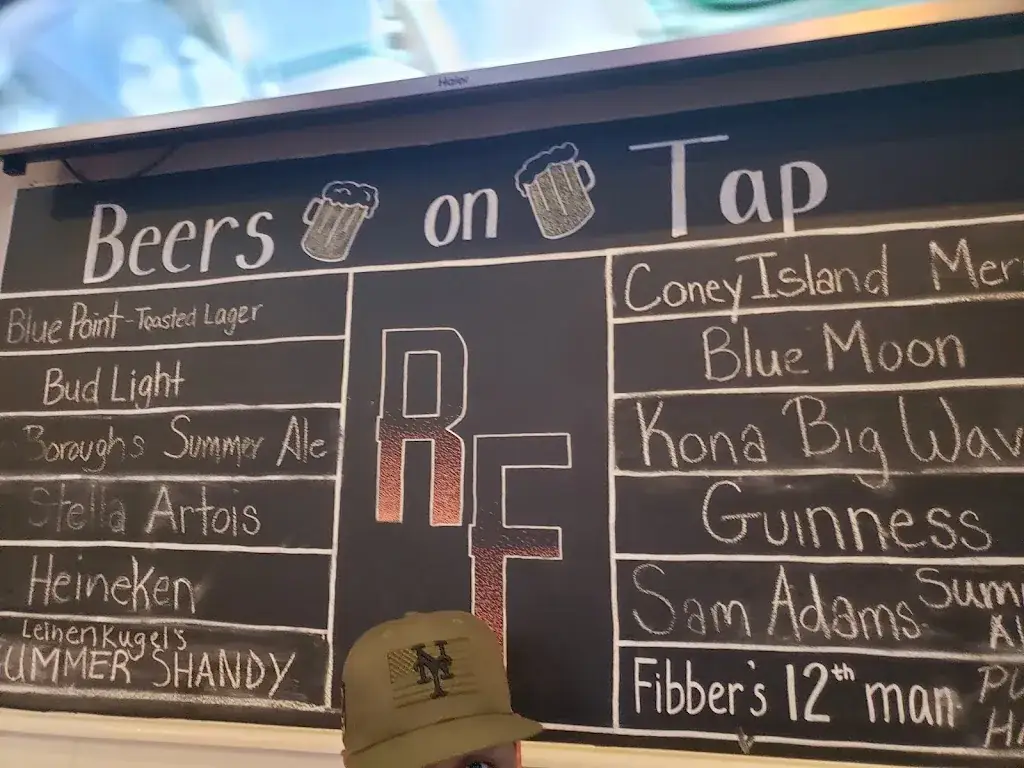 Haier
Beers on Tap
Blue Point - Toasted Lager
Bud Light
Boroughs Summer Ale
Stella Artois
Heineken
Leinenkugel's
SUMMER SHANDY
RF
NY
Coney Island Mer
Blue Moon
Kona Big Wav
Guinness
Sam Adams Summ
Al
Fibber's 12th man